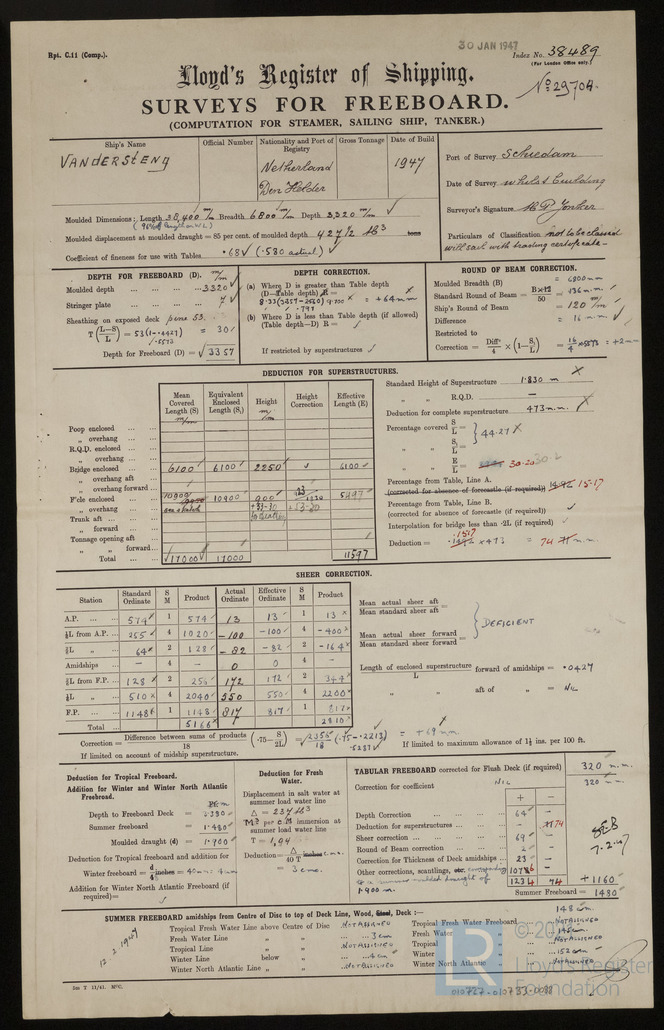 Rpt. C.11 (Comp.).
30 JAN 1947
Index No. 38489
(For London Office only.)
No 29704.
Lloyd's Register of Shipping.
SURVEYS FOR FREEBOARD.
(COMPUTATION FOR STEAMER, SAILING SHIP, TANKER.)
Ship's Name
VANDERSTENG
Official Number
Nationality and Port of Registry
Netherland
Den Helder
Gross Tonnage
Date of Build
1947
Port of Survey Schiedam
Date of Survey whilst Building
Surveyor's Signature
Particulars of Classification not to be classed
with sail with trading certificate
Moulded Dimensions: Length 38,400 m/m Breadth 6800 m/m Depth 3,320 m/m
Moulded displacement at moulded draught = 85 per cent. of moulded depth 427½ M³ tons
Coefficient of fineness for use with Tables .68 (.580 actual)
DEPTH FOR FREEBOARD (D).
Moulded depth ... 3320
Stringer plate ... 7
Sheathing on exposed deck pine 53.
T (L—S / L) = 53 (1-.4427) = 30
Depth for Freeboard (D) = 3357
DEPTH CORRECTION.
(a) Where D is greater than Table depth
(D—Table depth) R =
= +64 mm
(b) Where D is less than Table depth (if allowed)
(Table depth—D) R =
If restricted by superstructures
ROUND OF BEAM CORRECTION.
Moulded Breadth (B) = 6800 m
Standard Round of Beam = B×12 / 50 = 136 m/m
Ship's Round of Beam = 120 m/m
Difference = 16 m/m
Restricted to
Correction = Diff. / 4 × (1—S₁ / L) = 16 / 4 × .5573 = +2 mm
DEDUCTION FOR SUPERSTRUCTURES.
Mean Covered Length (S)
Equivalent Enclosed Length (S₁)
Height
Height Correction
Effective Length (E)
Poop enclosed
„ overhang
R.Q.D. enclosed
„ overhang
Bridge enclosed 6100 6100 2250 6100
„ overhang aft
„ overhang forward
F'cle enclosed 10900 10900 900 5497
„ overhang
Trunk aft
„ forward
Tonnage opening aft
„ forward
Total 17000 17000 11597
Standard Height of Superstructure 1.830 m
„ „ R.Q.D. —
Deduction for complete superstructure 473 m.m.
Percentage covered S / L
„ „ S₁ / L } 44.27
„ „ E / L = 30.20 30.2
Percentage from Table, Line A. 15.17
(corrected for absence of forecastle (if required))
Percentage from Table, Line B.
(corrected for absence of forecastle (if required))
Interpolation for bridge less than .2L (if required)
Deduction = .1517 × 473 = 74 m.m.
SHEER CORRECTION.
Station Standard Ordinate S M Product Actual Ordinate Effective Ordinate S M Product
A.P. 574 1 574 13 13 1 13
⅙L from A.P. 255 4 1020 -100 -100 4 -400
⅓L „ 64 2 128 -82 -82 2 -164
Amidships — 4 — 0 0 4 —
⅓L from F.P. 128 2 256 172 172 2 344
⅙L „ 510 4 2040 550 550 4 2200
F.P. 1148 1 1148 817 817 1 817
Total 5166 2810
Mean actual sheer aft
Mean standard sheer aft
Mean actual sheer forward
Mean standard sheer forward
} DEFICIENT
Length of enclosed superstructure / L forward of amidships = .0427
„ aft of „ = NIL
Correction = Difference between sums of products / 18 (.75— S / 2L) = 2356 / 18 (.75-.2213) = +69 mm
.5287
If limited on account of midship superstructure.
If limited to maximum allowance of 1½ ins. per 100 ft.
Deduction for Tropical Freeboard.
Addition for Winter and Winter North Atlantic Freeboard.
Depth to Freeboard Deck = 3.380
Summer freeboard = 1.480
Moulded draught (d) = 1.900
Deduction for Tropical freeboard and addition for
Winter freeboard = d / 4 inches = 40 mm = 4 cm
Addition for Winter North Atlantic Freeboard (if required) =
Deduction for Fresh Water.
Displacement in salt water at summer load water line
Δ = 237 M³
per cm immersion at summer load water line
T = 1.94
Deduction = Δ / 40 T inches cm.
= 3 cm.
TABULAR FREEBOARD corrected for Flush Deck (if required) 320 m.m.
Correction for coefficient NIL 320
+ —
Depth Correction 64 —
Deduction for superstructures — 74
Sheer correction 69 —
Round of Beam correction 2 —
Correction for Thickness of Deck amidships 23 —
Other corrections, scantlings, etc. corresponding 1076
to a summer moulded draught of
1.900 m
1234 74 +1160
Summer Freeboard = 1480
7.2.47
SUMMER FREEBOARD amidships from Centre of Disc to top of Deck Line, Wood, Steel, Deck :— 148 cm.
Tropical Fresh Water Line above Centre of Disc NOT ASSIGNED
Fresh Water Line „ „ 3 cm
Tropical Line „ „ NOT ASSIGNED
Winter Line below „ 4 cm
Winter North Atlantic Line „ „ NOT ASSIGNED
Tropical Fresh Water Freeboard NOT ASSIGNED
Fresh Water „ 145 cm
Tropical „ NOT ASSIGNED
Winter „ 152 cm
Winter North Atlantic „ NOT ASSIGNED
12.2.1947
2m T 11/41. MFC.
010727-010733-0088
LR
Lloyd's Register
Foundation